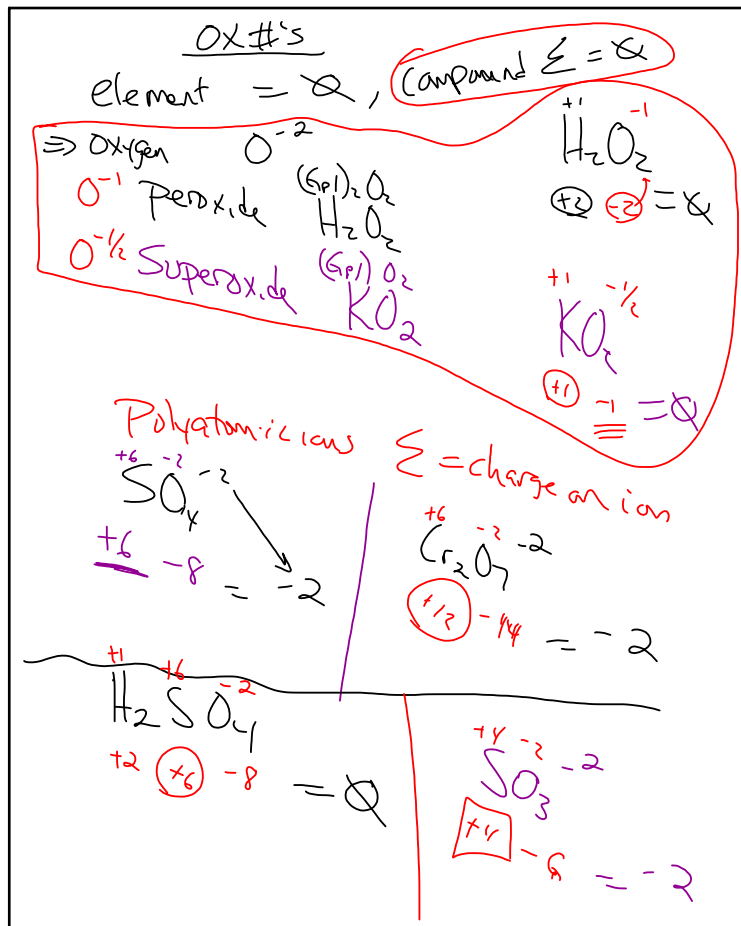 OX #'s
element = 0, Compound Σ = 0
⇒ Oxygen O⁻²
O⁻¹ Peroxide (Gp1)₂O₂
H₂O₂
O⁻¹/² Superoxide (Gp1) O₂
KO₂
+1 -1
H₂O₂
+2 -2 = 0
+1 -1/2
KO₂
+1 -1 = 0
Polyatomic ions Σ = charge on ion
+6 -2
SO₄⁻²
+6 -8 = -2
+6 -2
Cr₂O₇⁻²
+12 -14 = -2
+1 +6 -2
H₂SO₄
+2 +6 -8 = 0
+4 -2
SO₃⁻²
+4 -6 = -2